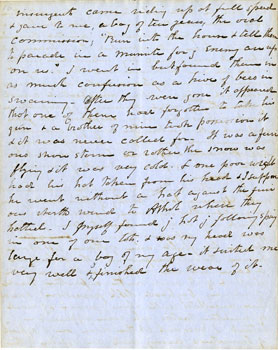 insurgent came riding up at full speed
& gave to me, a boy of ten years, the oral
commission, "Run into the house & tell them
to parade in a minute for enemy are up
on us. I went in but found them in
as much confusion as a hive of bees in
swarming. After they were gone it appeared
that one of them had forgotten to take his
gun & a brother of mine took possession it
& it was never called for. It was a
snow storm or rather the snow was
flying & it was very cold & one poor
had his hat taken from his head &
he went without a hat against the
north wind to Athol where they
halted. I myself found hot following
in one of the lots, & tho my head was
large for a boy of my age it suited me
very well & finished the wear of it.